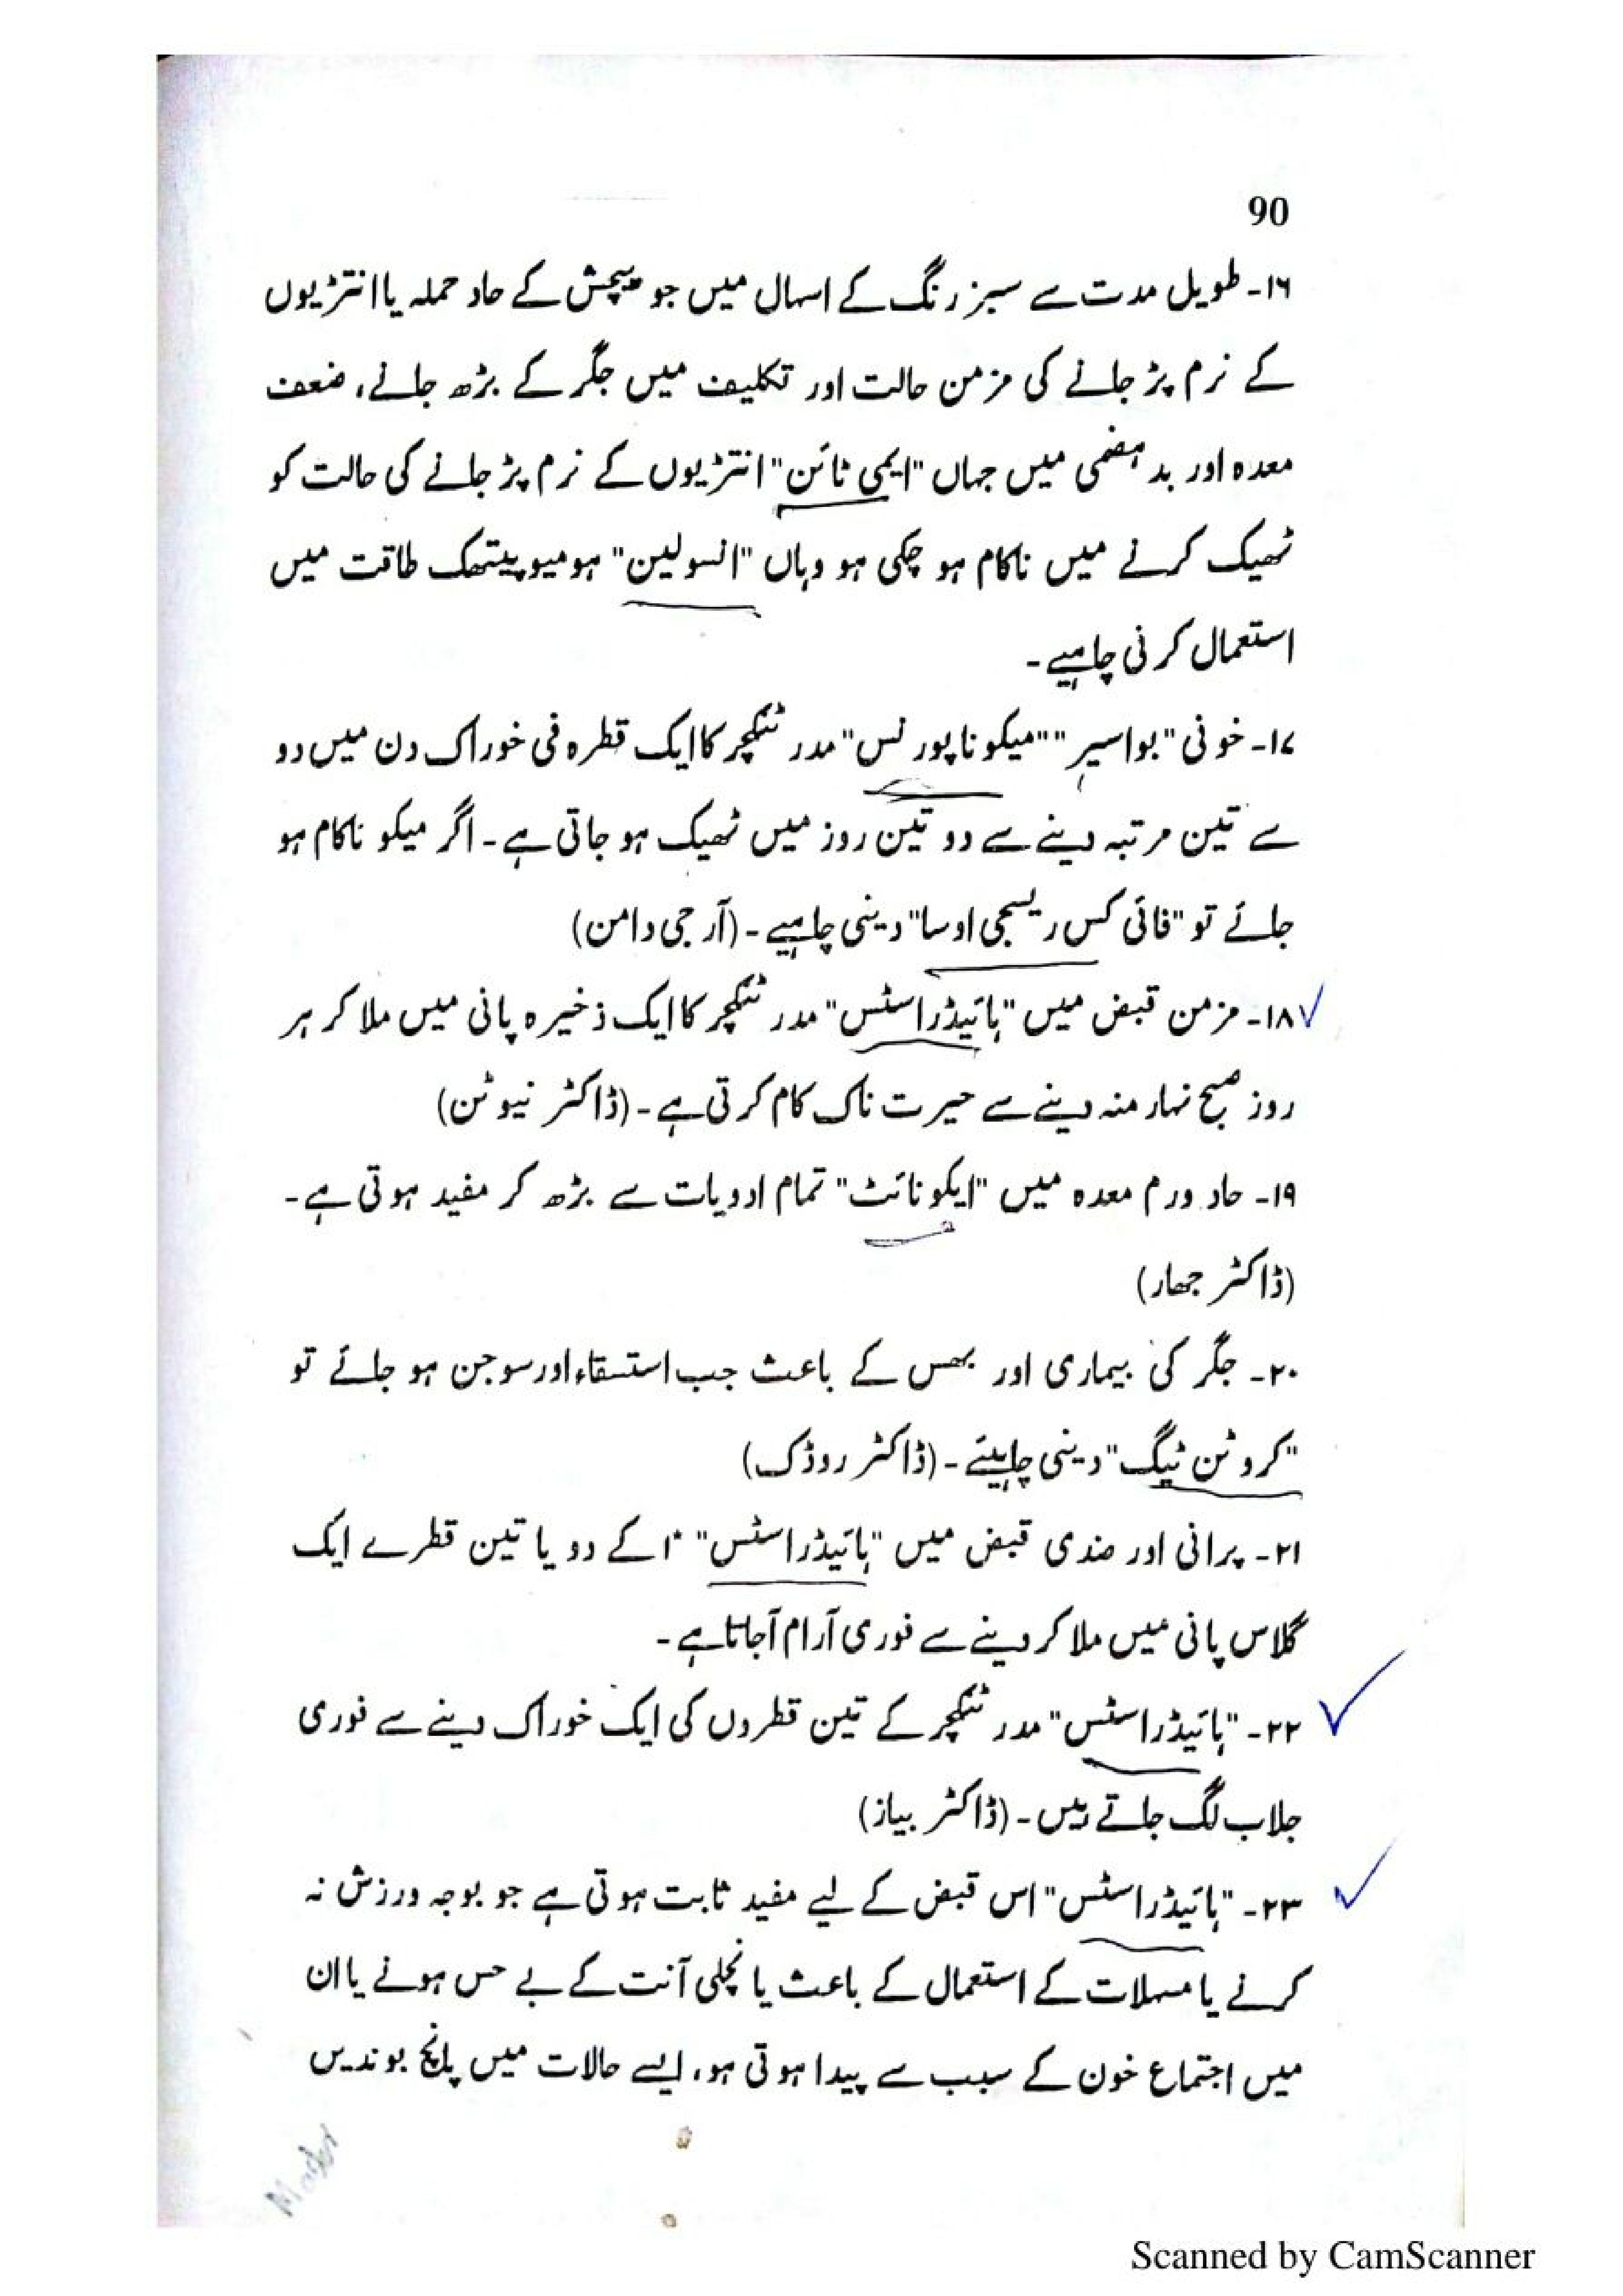 90
۱۶۔ طویل مدت سے سبز رنگ کے اسہال میں جو پیچش کے حاد حملہ یا انتڑیوں
کے نرم پڑ جانے کی مزمن حالت اور تکلیف میں جگر کے بڑھ جانے، ضعف
معدہ اور بد ہضمی میں جہاں "ایمی ٹائن" انتڑیوں کے نرم پڑ جانے کی حالت کو
ٹھیک کرنے میں ناکام ہو چکی ہو وہاں "انسولین" ہومیوپیتھک طاقت میں
استعمال کرنی چاہیے۔
۱۷۔ خونی "بواسیر" "میکونا پورنس" مدر ٹنکچر کا ایک قطرہ فی خوراک دن میں دو
سے تین مرتبہ دینے سے دو تین روز میں ٹھیک ہو جاتی ہے۔ اگر میکو ناکام ہو
جائے تو "فائی کس ریلیجی اوسا" دینی چاہیے۔ (آر جی دامن)
۱۸۔ مزمن قبض میں "ہائیڈراسٹس" مدر ٹنکچر کا ایک ذخیرہ پانی میں ملا کر ہر
روز صبح نہار منہ دینے سے حیرت ناک کام کرتی ہے۔ (ڈاکٹر نیوٹن)
۱۹۔ حاد ورم معدہ میں "ایکونائٹ" تمام ادویات سے بڑھ کر مفید ہوتی ہے۔
(ڈاکٹر جھار)
۲۰۔ جگر کی بیماری اور بھس کے باعث جب استسقاء اور سوجن ہو جائے تو
"کروٹن ٹیگ" دینی چاہیئے۔ (ڈاکٹر روڈک)
۲۱۔ پرانی اور ضدی قبض میں "ہائیڈراسٹس" کے دو یا تین قطرے ایک
گلاس پانی میں ملا کر دینے سے فوری آرام آجاتا ہے۔
۲۲۔ "ہائیڈراسٹس" مدر ٹنکچر کے تین قطروں کی ایک خوراک دینے سے فوری
جلاب لگ جاتے ہیں۔ (ڈاکٹر بیاز)
۲۳۔ "ہائیڈراسٹس" اس قبض کے لیے مفید ثابت ہوتی ہے جو بوجہ ورزش نہ
کرنے یا مسہلات کے استعمال کے باعث یا نچلی آنت کے بے حس ہونے یا ان
میں اجتماع خون کے سبب سے پیدا ہوتی ہو، ایسے حالات میں پانچ بوندیں
Scanned by CamScanner